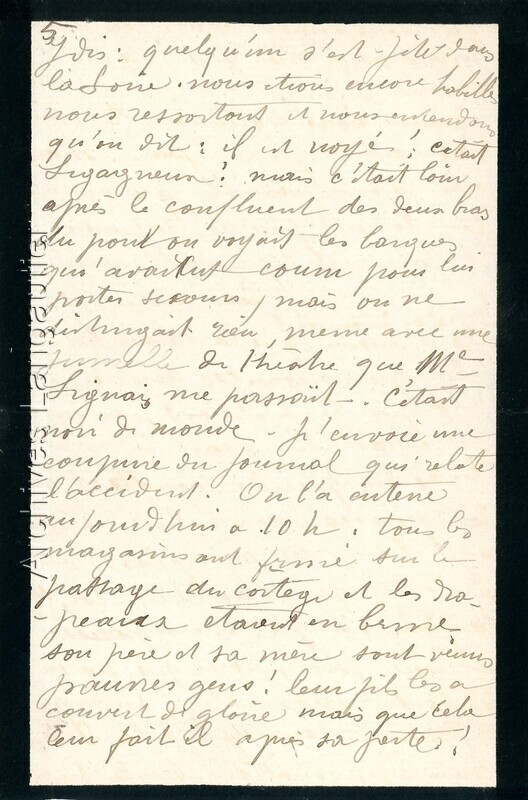 5
J dis : quelqu'un s'est jeté dans
la Loire. nous étions encore habillés
nous ressortons et nous entendons
qu'on dit : il est noyé ! c'était
mais c'était loin
après le confluent des deux bras
du pont on voyait les barques
qu'avaient couru pour lui
porter secours, mais on ne
distingait rien, meme avec une
jumelle de théatre que Me
Lignais me passait. C'était
noir de monde - J'envoie une
coupure du journal qui relate
l'accident. On l'a enterré
aujourd'hui a 10 h : tous les
magasins ont fermé sur le
passage du cortège et les dra-
peaux étaient en berne
son père et sa mère sont venus
pauvres gens ! leur fils les a
couvert de gloire mais que cela
leur fait il après sa perte !
Archives Langautier